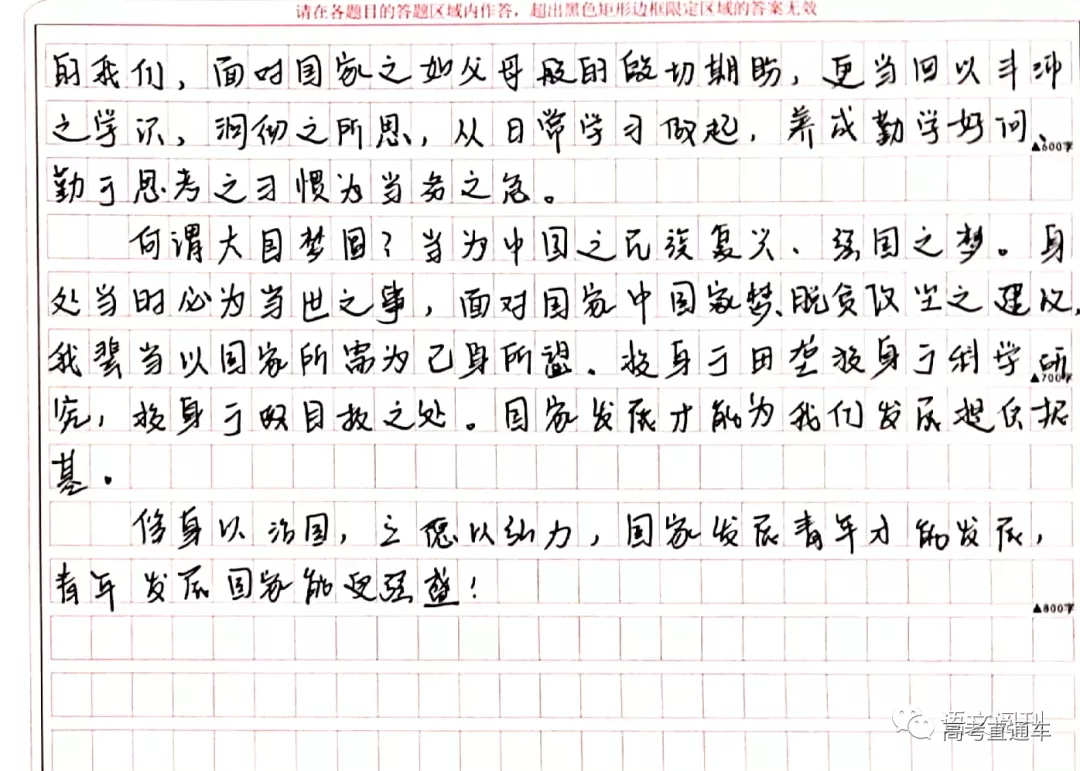 请在各题目的答题区域内作答，超出黑色矩形边框限定区域的答案无效
的我们，面对国家之如父母般的殷切期盼，更当回以丰沛
之学识，洞彻之所思，从日常学习做起，养成勤学好问、
▲600字
勤于思考之习惯为当务之急。
何谓大国梦圆？当为中国之民族复兴、强国之梦。身
处当时必为当世之事，面对国家中国家梦、脱贫攻坚之建议，
我辈当以国家所需为己身所盼、投身于田垄投身于科学研
▲700字
究，投身于 之处。国家发展才能为我们发展提供根
基。
修身以治国，立德以弘力，国家发展青年才能发展，
青年发展国家能更强盛！
▲800字
语文阅刊
高考直通车